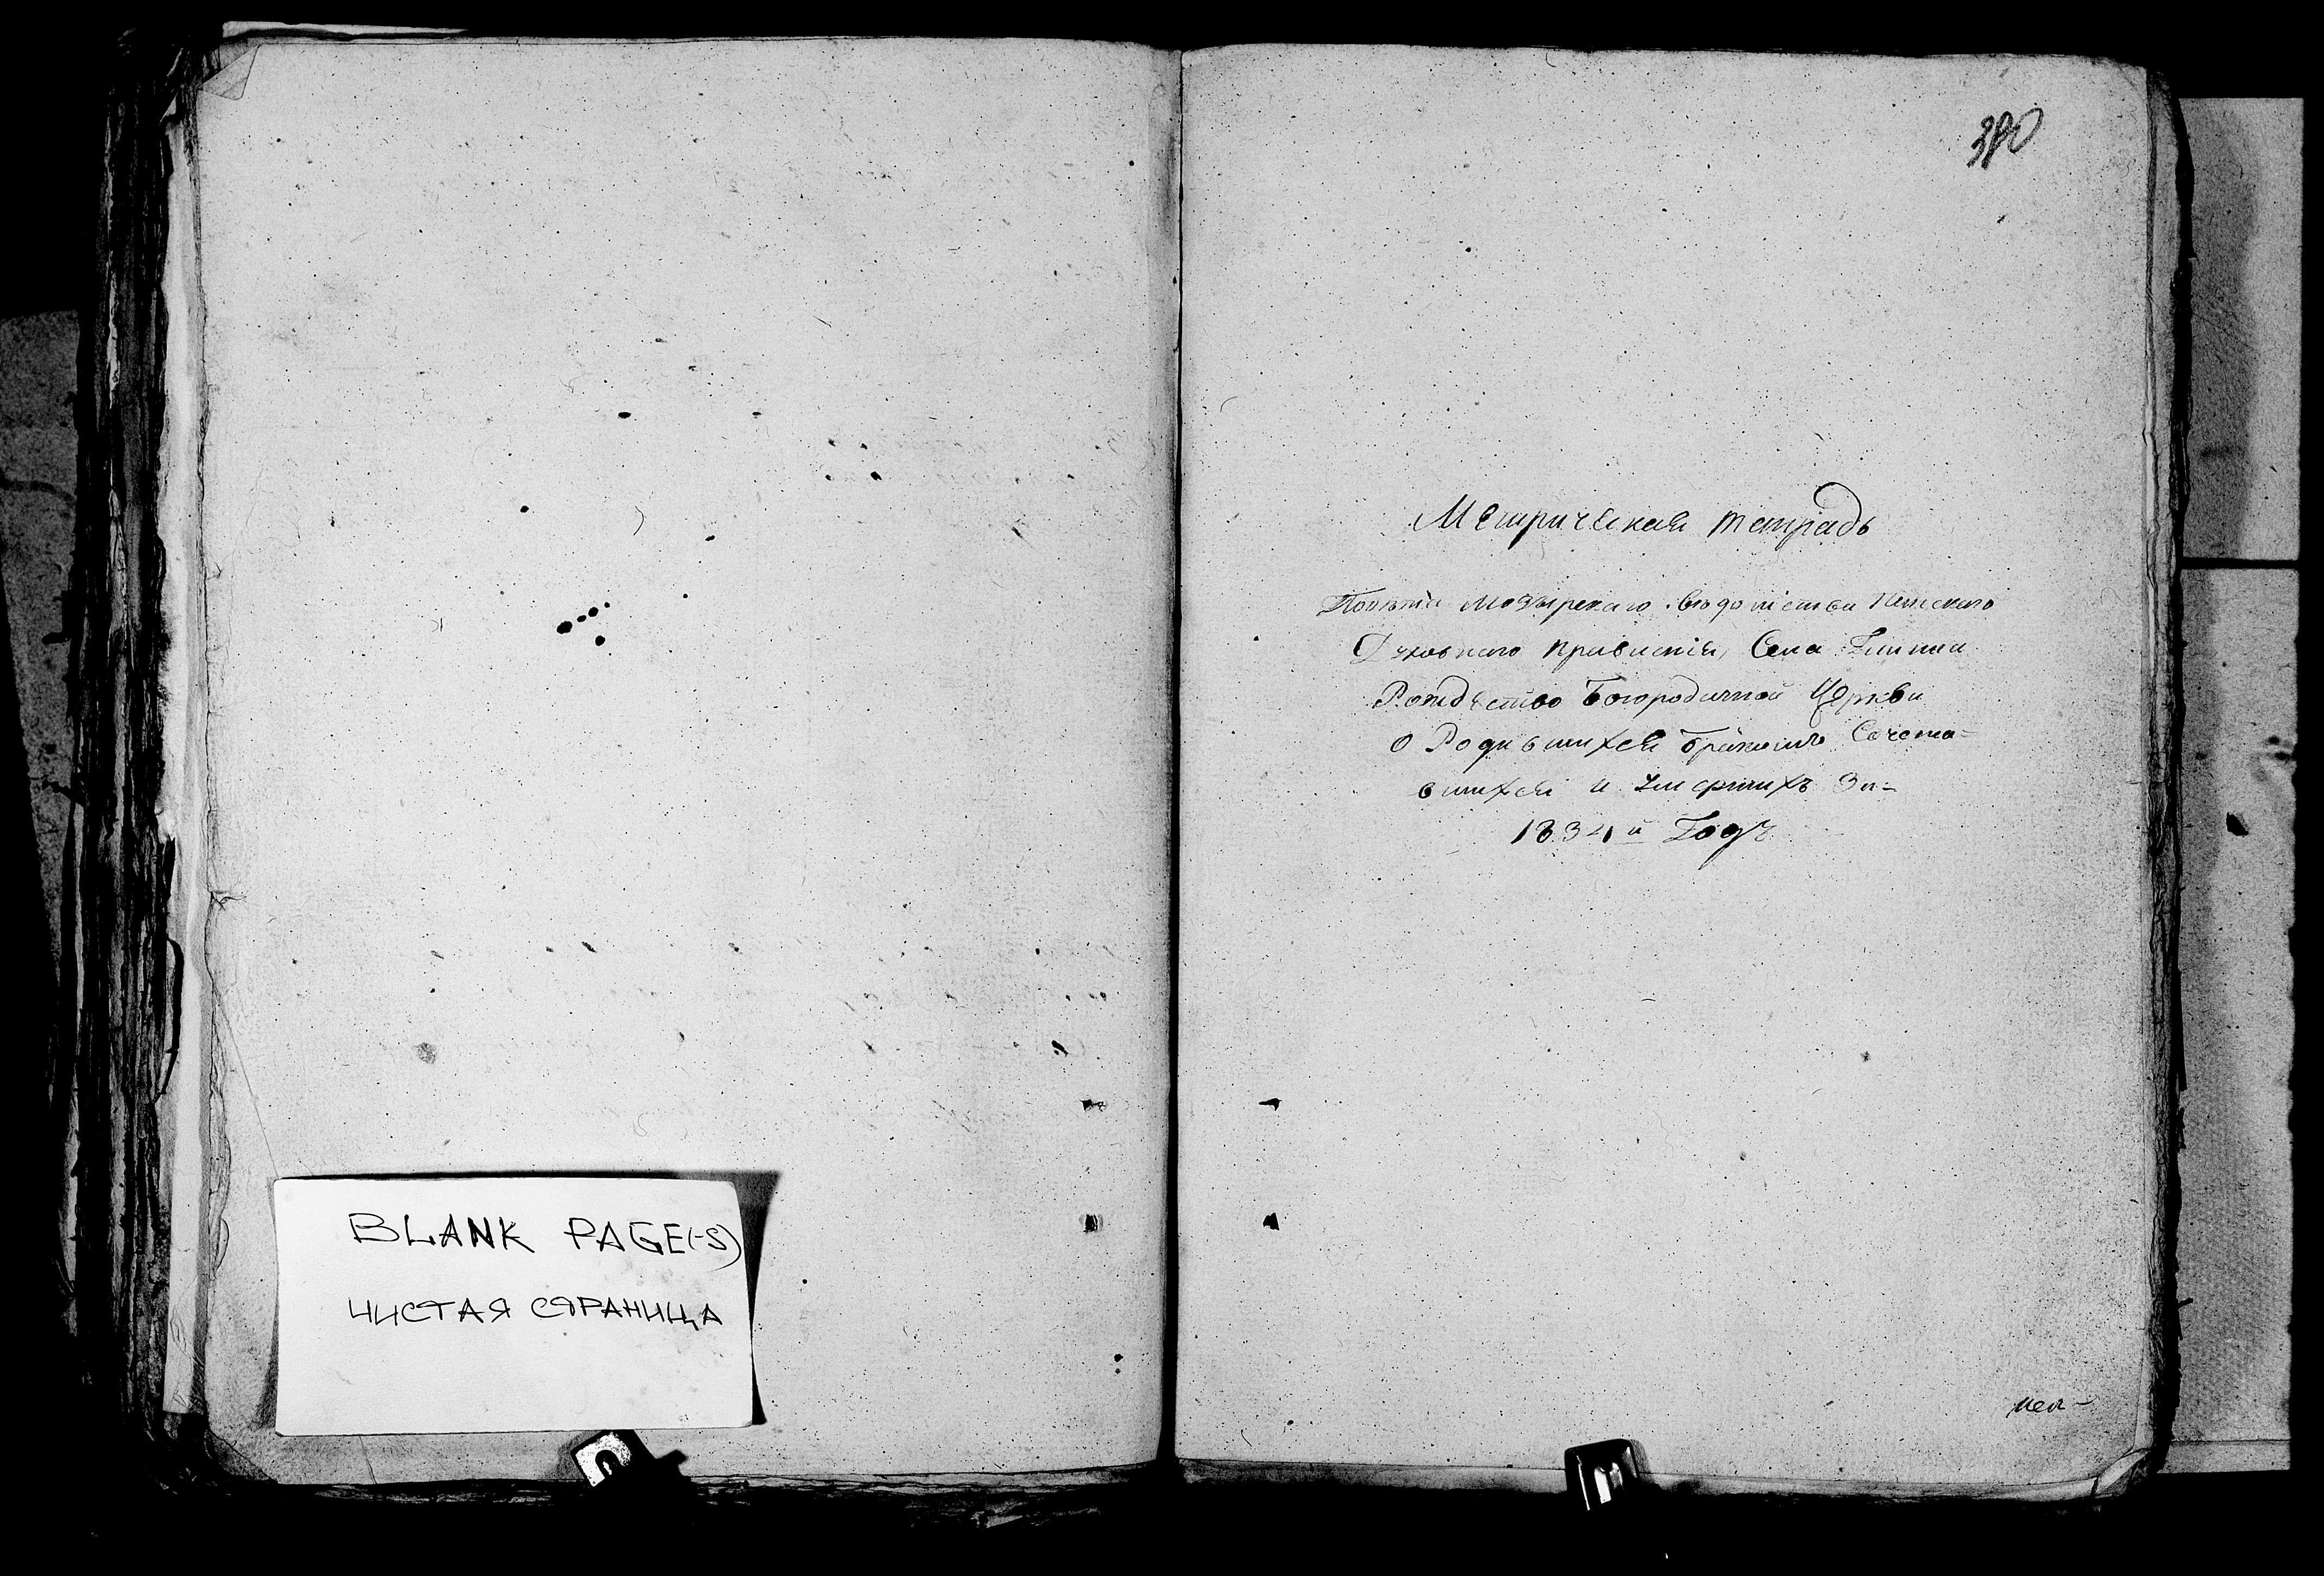 BLANK PAGE(-S)
ЧИСТАЯ СТРАНИЦА
380
Метрическая тетрадь
Повѣта Мозырскаго вѣдомства
Духовнаго Правленія, Села
Рождество Богородичной Церкви
О Родившихся бракомъ Сочета=
вшихся и Умершихъ За=
1834й Годъ